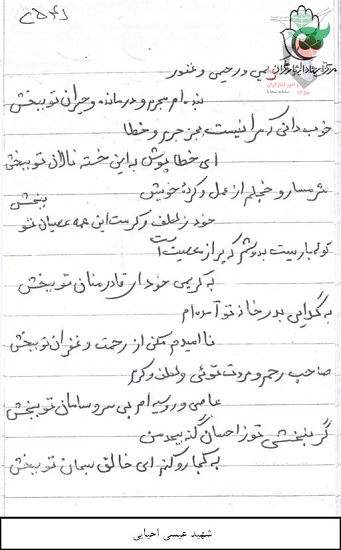 مرکز اسناد ایثارگران
۱۳۵۸
رحیمی و رحمی و غفور
بنده ام مجرم و درمانده و حیران تو ببخش
خوب دانی که مرا نیست بجز جرم و خطا
ای خطا پوش به این خسته نالان تو ببخش
شرمسار و خجلم از عمل و کردهٔ خویش
خود ز لطف و کرمت این همه عصیان تو ببخش
کوله باریست بدوشم که پر از معصیت است
به کریمی خود ای قادر منان تو ببخش
به گدایی به در خانه تو آمده ام
ناامیدم مکن از رحمت و غفران تو ببخش
صاحب رحم و مروت توئی و لطف و کرم
عاصی و روسیه ام بی سر و سامان تو ببخش
گر نبخشی تو ز احسان گنه بیحد من
به کجا رو کنم ای خالق سبحان تو ببخش
شهید عیسی احیایی